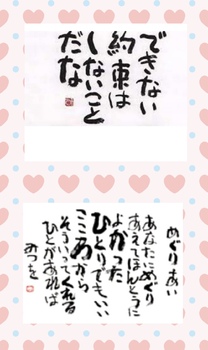 できない
約束は
しないこと
だな
めぐりあい
あなたにめぐり
あえてほんとうに
よかった
ひとりでもいい
こころから
そういってくれる
ひとがあれば
みつを